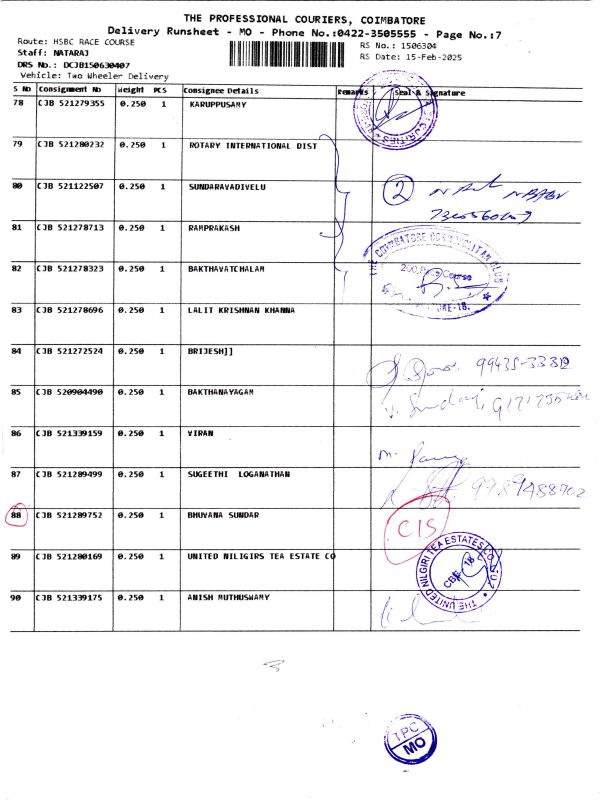 THE PROFESSIONAL COURIERS, COIMBATORE
Delivery Runsheet - MO - Phone No.:0422-3505555 - Page No.:7
Route: HSBC RACE COURSE
Staff: NATARAJ
DRS No.: DCJB150630407
Vehicle: Two Wheeler Delivery
RS No.: 1506304
RS Date: 15-Feb-2025
S No Consignment No Weight PCS Consignee Details Remarks Seal & Signature
78 CJB 521279355 0.250 1 KARUPPUSAMY
79 CJB 521280232 0.250 1 ROTARY INTERNATIONAL DIST
80 CJB 521122507 0.250 1 SUNDARAVADIVELU
2
81 CJB 521278713 0.250 1 RAMPRAKASH
THE COIMBATORE COSMOPOLITAN CLUB
200, Race Course
82 CJB 521278323 0.250 1 BAKTHAVATCHALAM
83 CJB 521278696 0.250 1 LALIT KRISHNAN KHANNA
84 CJB 521272524 0.250 1 BRIJESH]]
85 CJB 520904490 0.250 1 BAKTHANAYAGAM
86 CJB 521339159 0.250 1 VIRAN
87 CJB 521289499 0.250 1 SUGEETHI LOGANATHAN
88 CJB 521289752 0.250 1 BHUVANA SUNDAR
CIS
89 CJB 521280169 0.250 1 UNITED NILIGIRS TEA ESTATE CO
THE UNITED NILGIRI TEA ESTATES CO.
CBE 18
90 CJB 521339175 0.250 1 ANISH MUTHUSWAMY
TPC
MO